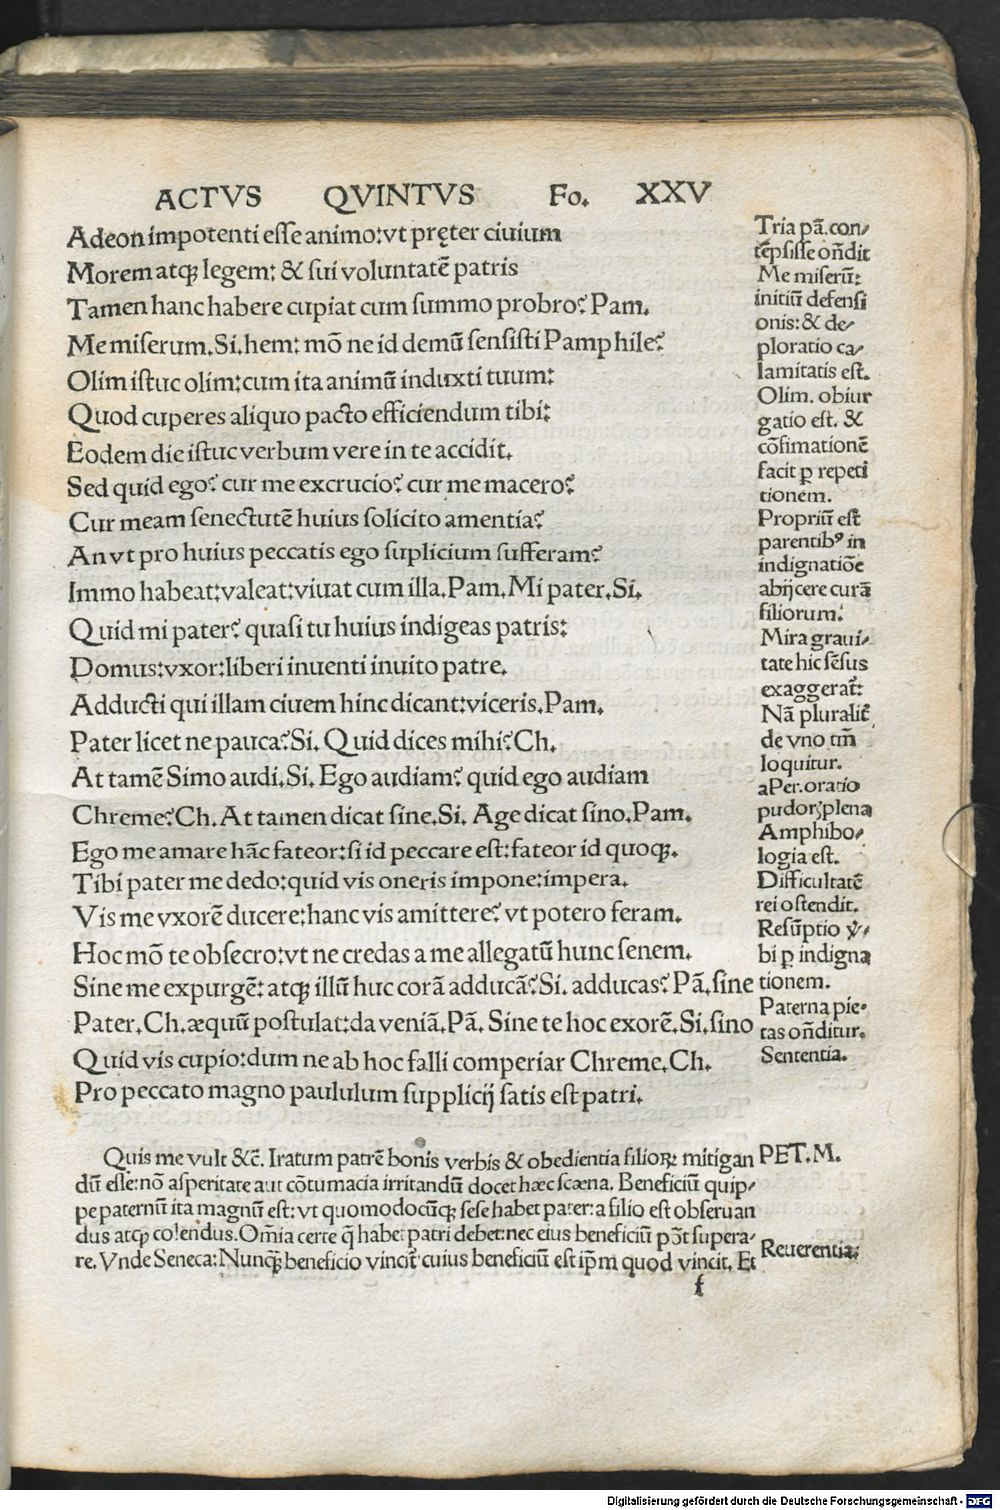 ACTVS QVINTVS Fo. XXV
Adeon impotenti esse animo: vt pręter ciuium
Morem atqꝫ legem: & sui voluntatē patris
Tamen hanc habere cupiat cum summo probro? Pam.
Me miserum. Si. hem: mō ne id demū sensisti Pamphile?
Olim istuc olim: cum ita animū induxti tuum:
Quod cuperes aliquo pacto efficiendum tibi:
Eodem die istuc verbum vere in te accidit.
Sed quid ego? cur me excrucio? cur me macero?
Cur meam senectutē huius solicito amentia?
An vt pro huius peccatis ego suplicium sufferam?
Immo habeat: valeat: viuat cum illa. Pam. Mi pater. Si.
Quid mi pater? quasi tu huius indigeas patris:
Domus: vxor: liberi inuenti inuito patre.
Adducti qui illam ciuem hinc dicant: viceris. Pam.
Pater licet ne pauca? Si. Quid dices mihi? Ch.
At tamē Simo audi. Si. Ego audiam? quid ego audiam
Chreme? Ch. At tamen dicat sine. Si. Age dicat sino. Pam.
Ego me amare hāc fateor: si id peccare est: fateor id quoqꝫ.
Tibi pater me dedo: quid vis oneris impone: impera.
Vis me vxorē ducere: hanc vis amittere? vt potero feram.
Hoc mō te obsecro: vt ne credas a me allegatū hunc senem.
Sine me expurgē: atqꝫ illū huc corā adducā? Si. adducas? Pā. sine
Pater. Ch. æquū postulat: da veniā. Pā. Sine te hoc exorē. Si. sino
Quid vis cupio: dum ne ab hoc falli comperiar Chreme. Ch.
Pro peccato magno paululum supplicij satis est patri.
Tria pā. con/
tēpsisse oñdit
Me miserū:
initiū defensi
onis: & de/
ploratio ca/
lamitatis est.
Olim. obiur
gatio est. &
cōfimationē
facit ꝑ repeti
tionem.
Propriū est
parentibꝰ in
indignatiōe
abijcere curā
filiorum:
Mira graui/
tate hic sēsus
exaggerat̄:
Nā pluralit̄
de vno tm̄
loquitur.
aPer. oratio
pudorꝫ plena
Amphibo/
logia est.
Difficultatē
rei ostendit.
Resūptio v̄/
bi ꝑ indigna
tionem.
Paterna pie/
tas oñditur.
Sententia.
Quis me vult &c̄. Iratum patrē bonis verbis & obedientia filioꝝ mitigan
dū esse: nō asperitate aut cōtumacia irritandū docet hæc scæna. Beneficiū quip/
pe paternū ita magnū est: vt quomodocūqꝫ sese habet pater: a filio est obseruan
dus atqꝫ colendus. Om̄ia certe q̄ habet patri debet: nec eius beneficiū pōt supera/
re. Vnde Seneca: Nunqꝫ̄ beneficio vincit̄ cuius beneficiū est ip̄m quod vincit. Et
PET. M.
Reuerentia:
f
Digitalisierung gefördert durch die Deutsche Forschungsgemeinschaft - DFG